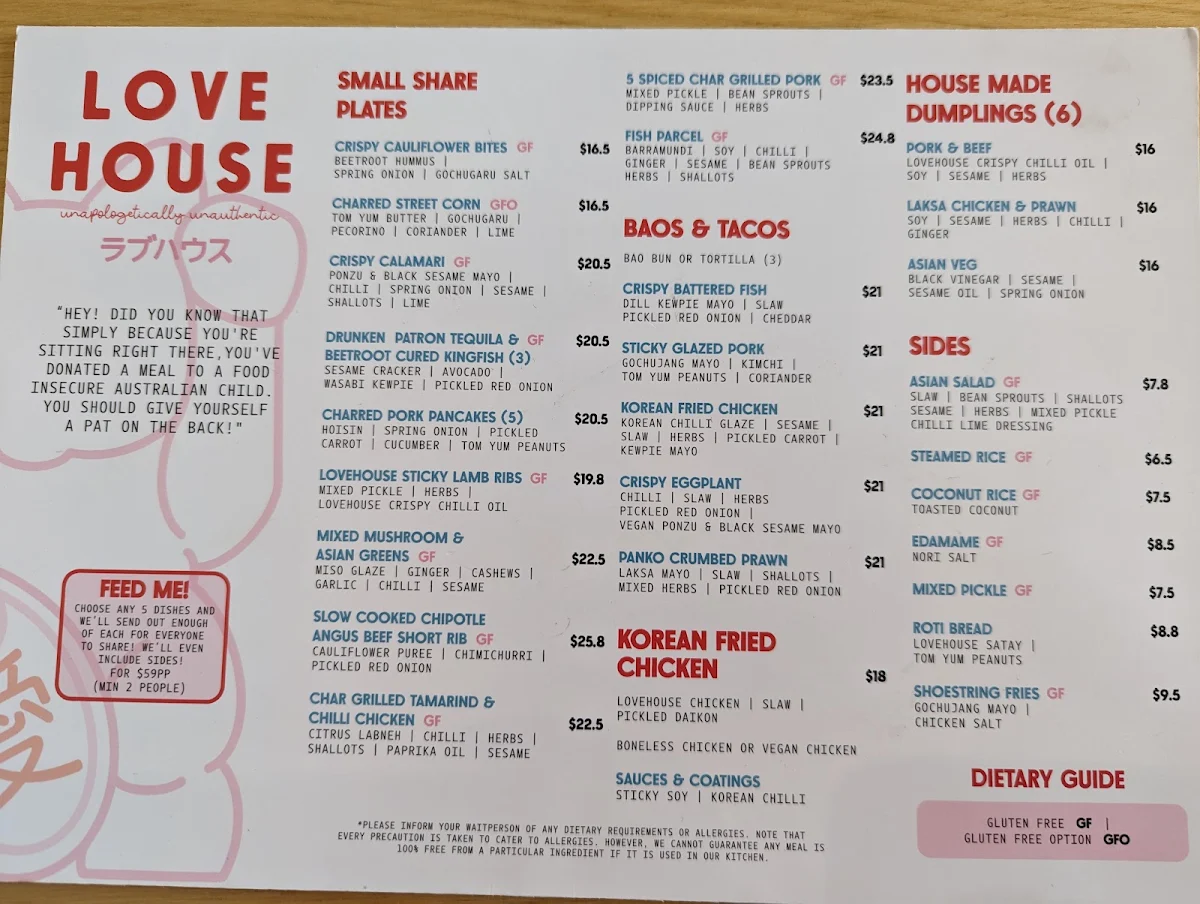 LOVE
HOUSE
unapologetically unauthentic
ラブハウス
"HEY! DID YOU KNOW THAT
SIMPLY BECAUSE YOU'RE
SITTING RIGHT THERE,YOU'VE
DONATED A MEAL TO A FOOD
INSECURE AUSTRALIAN CHILD.
YOU SHOULD GIVE YOURSELF
A PAT ON THE BACK!"
FEED ME!
CHOOSE ANY 5 DISHES AND
WE'LL SEND OUT ENOUGH
OF EACH FOR EVERYONE
TO SHARE! WE'LL EVEN
INCLUDE SIDES!
FOR $59PP
(MIN 2 PEOPLE)
SMALL SHARE
PLATES
CRISPY CAULIFLOWER BITES GF $16.5
BEETROOT HUMMUS |
SPRING ONION | GOCHUGARU SALT
CHARRED STREET CORN GFO $16.5
TOM YUM BUTTER | GOCHUGARU |
PECORINO | CORIANDER | LIME
CRISPY CALAMARI GF $20.5
PONZU & BLACK SESAME MAYO |
CHILLI | SPRING ONION | SESAME |
SHALLOTS | LIME
DRUNKEN PATRON TEQUILA & GF $20.5
BEETROOT CURED KINGFISH (3)
SESAME CRACKER | AVOCADO |
WASABI KEWPIE | PICKLED RED ONION
CHARRED PORK PANCAKES (5) $20.5
HOISIN | SPRING ONION | PICKLED
CARROT | CUCUMBER | TOM YUM PEANUTS
LOVEHOUSE STICKY LAMB RIBS GF $19.8
MIXED PICKLE | HERBS |
LOVEHOUSE CRISPY CHILLI OIL
MIXED MUSHROOM &
ASIAN GREENS GF $22.5
MISO GLAZE | GINGER | CASHEWS |
GARLIC | CHILLI | SESAME
SLOW COOKED CHIPOTLE
ANGUS BEEF SHORT RIB GF $25.8
CAULIFLOWER PUREE | CHIMICHURRI |
PICKLED RED ONION
CHAR GRILLED TAMARIND &
CHILLI CHICKEN GF $22.5
CITRUS LABNEH | CHILLI | HERBS |
SHALLOTS | PAPRIKA OIL | SESAME
5 SPICED CHAR GRILLED PORK GF $23.5
MIXED PICKLE | BEAN SPROUTS |
DIPPING SAUCE | HERBS
FISH PARCEL GF $24.8
BARRAMUNDI | SOY | CHILLI |
GINGER | SESAME | BEAN SPROUTS
HERBS | SHALLOTS
BAOS & TACOS
BAO BUN OR TORTILLA (3)
CRISPY BATTERED FISH $21
DILL KEWPIE MAYO | SLAW
PICKLED RED ONION | CHEDDAR
STICKY GLAZED PORK $21
GOCHUJANG MAYO | KIMCHI |
TOM YUM PEANUTS | CORIANDER
KOREAN FRIED CHICKEN $21
KOREAN CHILLI GLAZE | SESAME |
SLAW | HERBS | PICKLED CARROT |
KEWPIE MAYO
CRISPY EGGPLANT $21
CHILLI | SLAW | HERBS
PICKLED RED ONION |
VEGAN PONZU & BLACK SESAME MAYO
PANKO CRUMBED PRAWN $21
LAKSA MAYO | SLAW | SHALLOTS |
MIXED HERBS | PICKLED RED ONION
KOREAN FRIED
CHICKEN $18
LOVEHOUSE CHICKEN | SLAW |
PICKLED DAIKON
BONELESS CHICKEN OR VEGAN CHICKEN
SAUCES & COATINGS
STICKY SOY | KOREAN CHILLI
HOUSE MADE
DUMPLINGS (6)
PORK & BEEF $16
LOVEHOUSE CRISPY CHILLI OIL |
SOY | SESAME | HERBS
LAKSA CHICKEN & PRAWN $16
SOY | SESAME | HERBS | CHILLI |
GINGER
ASIAN VEG $16
BLACK VINEGAR | SESAME |
SESAME OIL | SPRING ONION
SIDES
ASIAN SALAD GF $7.8
SLAW | BEAN SPROUTS | SHALLOTS
SESAME | HERBS | MIXED PICKLE
CHILLI LIME DRESSING
STEAMED RICE GF $6.5
COCONUT RICE GF $7.5
TOASTED COCONUT
EDAMAME GF $8.5
NORI SALT
MIXED PICKLE GF $7.5
ROTI BREAD $8.8
LOVEHOUSE SATAY |
TOM YUM PEANUTS
SHOESTRING FRIES GF $9.5
GOCHUJANG MAYO |
CHICKEN SALT
DIETARY GUIDE
GLUTEN FREE GF |
GLUTEN FREE OPTION GFO
*PLEASE INFORM YOUR WAITPERSON OF ANY DIETARY REQUIREMENTS OR ALLERGIES. NOTE THAT
EVERY PRECAUTION IS TAKEN TO CATER TO ALLERGIES. HOWEVER, WE CANNOT GUARANTEE ANY MEAL IS
100% FREE FROM A PARTICULAR INGREDIENT IF IT IS USED IN OUR KITCHEN.